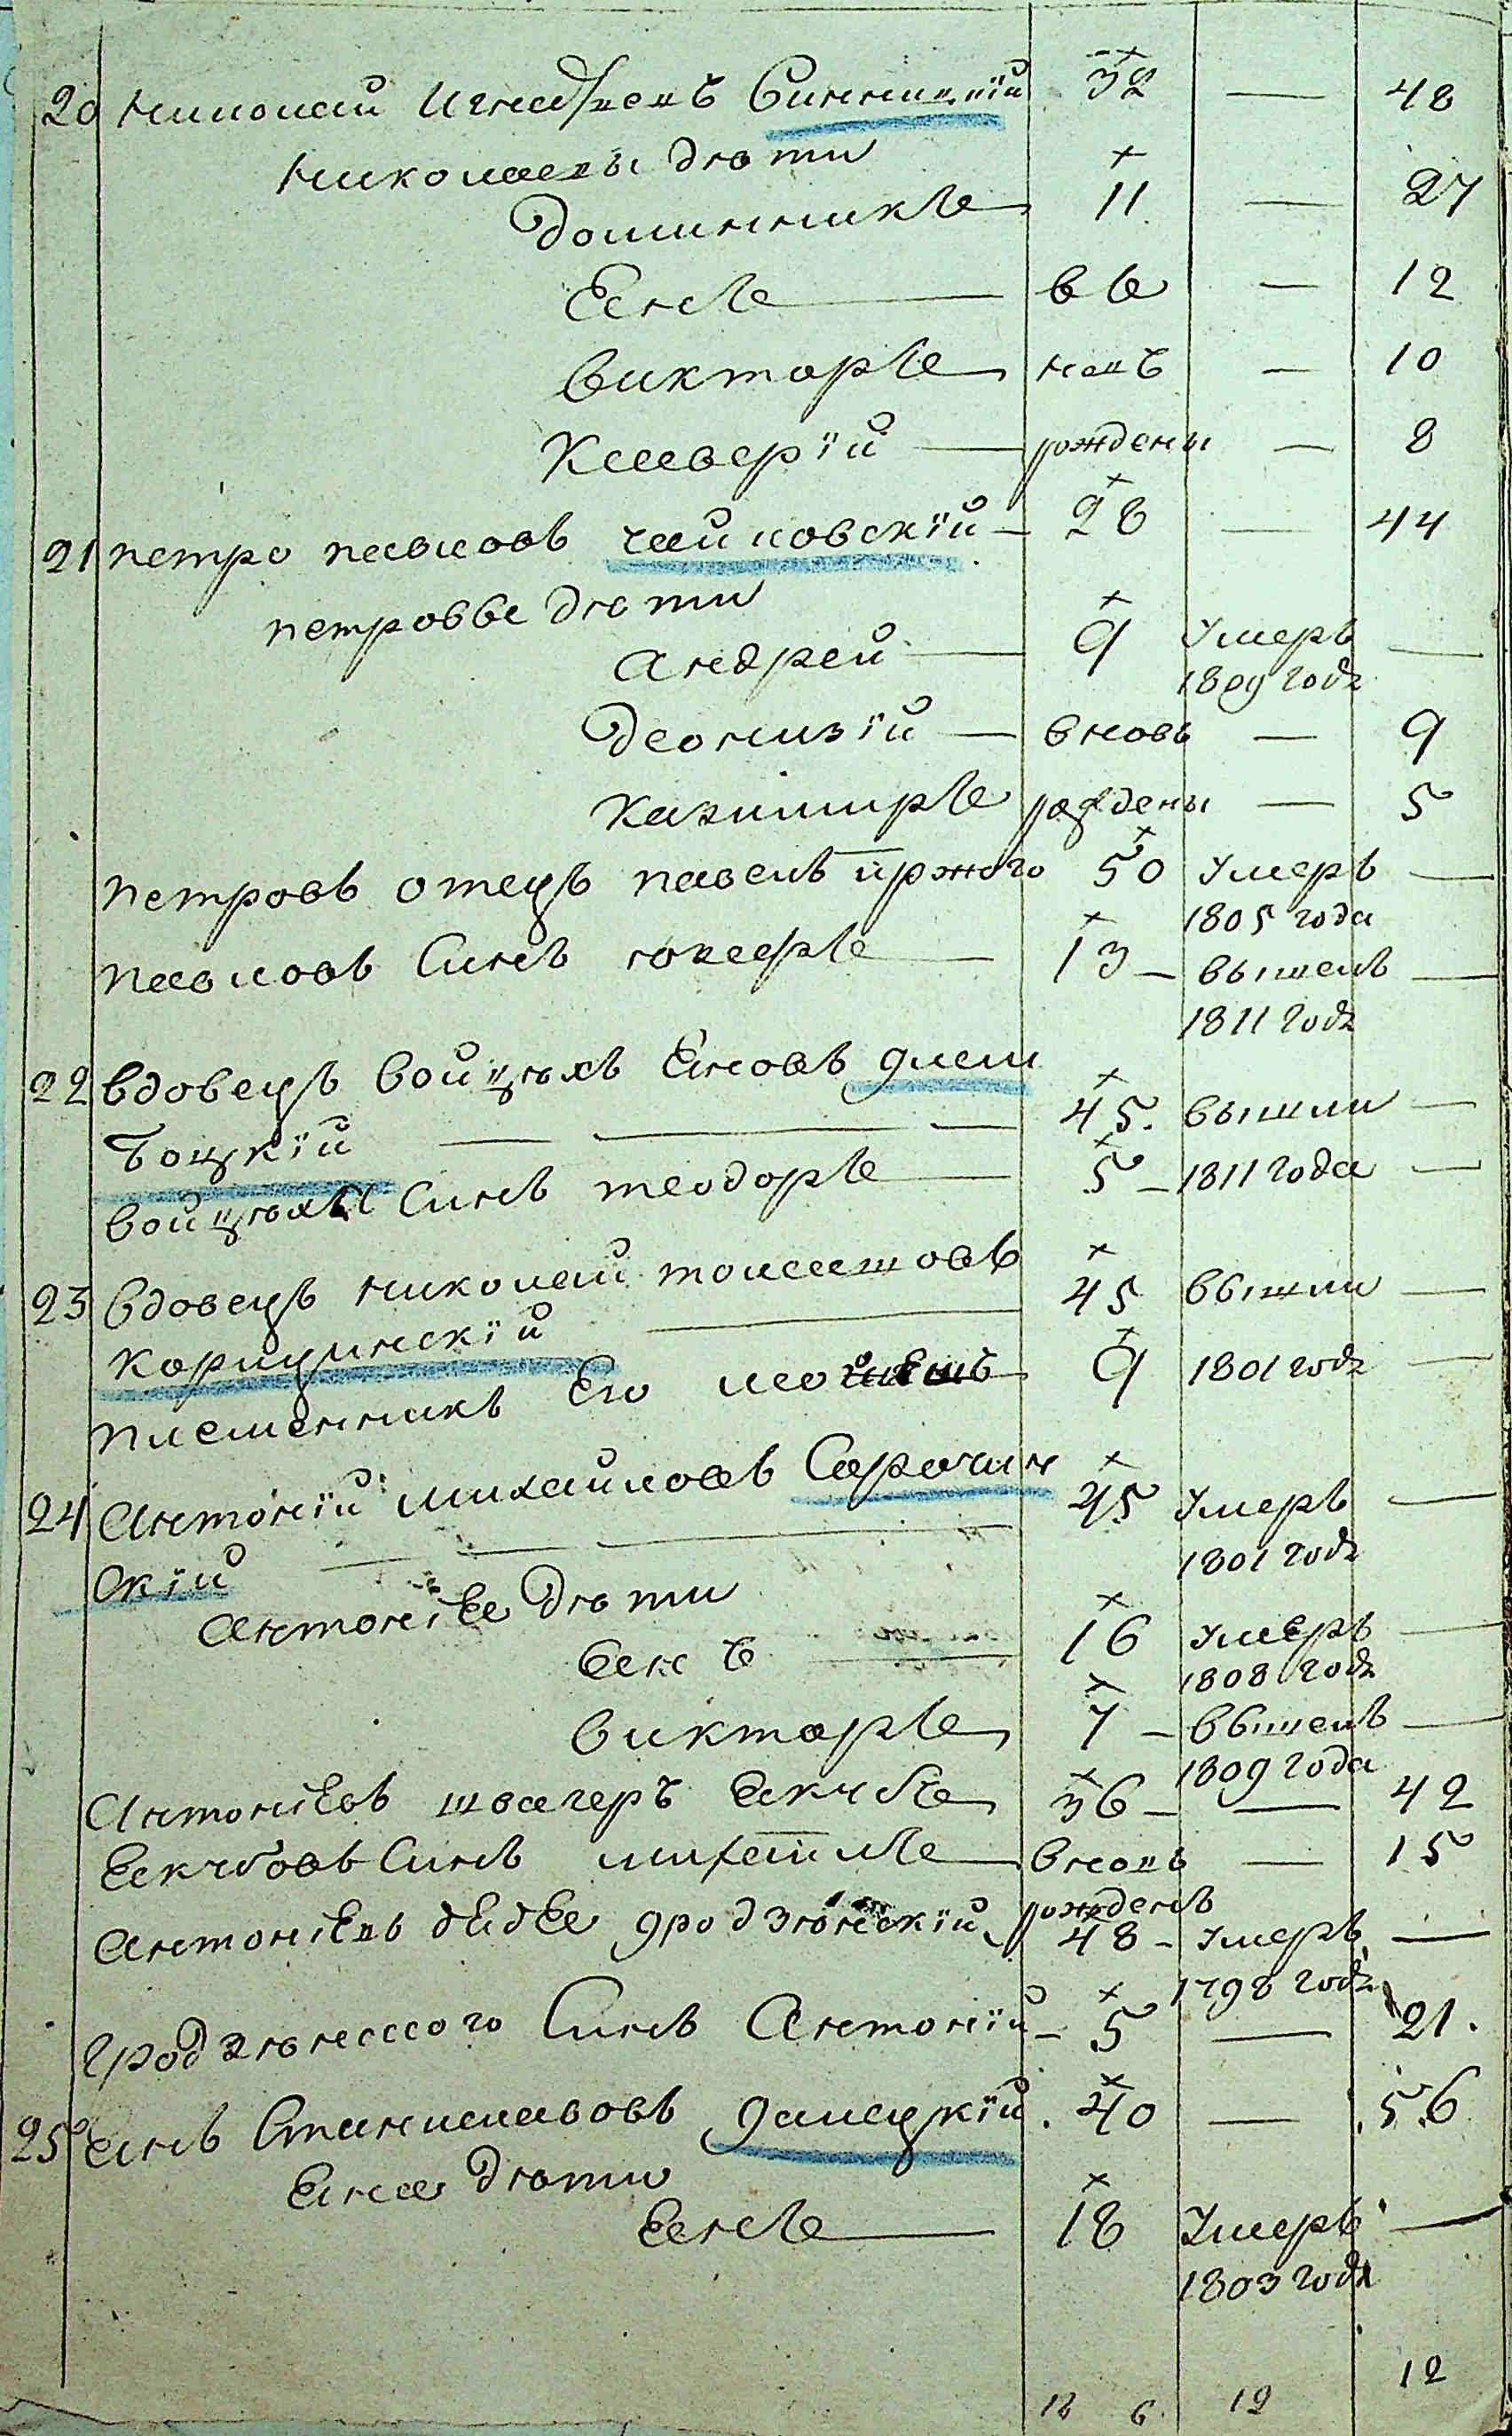 20 Николай Синницкий 32 — 48
Николаевы дѣти
Доминикъ 11 — 27
Янъ в в — 12
Викторъ новъ — 10
Ксаверій рождены — 8
21 Петро Павловъ Чайковскій 28 — 44
Петрова дѣти
Андрей 9 Умеръ —
1809 годȣ
Деонизій вновь — 9
Казимиръ рождены — 5
Петровъ отецъ Павелъ 50 Умеръ —
1805 года
Павловъ Синъ Юзефъ 13 вышелъ —
1811 годȣ
22 Вдовецъ Войцѣхъ Яновъ Дем
боцкій 45. вышли —
Войцѣха Синъ Теодоръ 5 1811 года —
23 Вдовецъ Николай Томашовъ
Корицинскій 45 вышли —
Племенникъ Его 9 1801 годȣ —
24 Антоній Михайловъ Сорочин 45 Умеръ —
скій 1801 годȣ
Антонія дѣти
Янъ 16 Умеръ —
1808 годȣ
Викторъ 7 вышелъ —
1809 года
Антоніевъ швагеръ Якубъ 36 — 42
Якубовъ Синъ Михайлъ вновь — 15
рожденъ
Антоніевъ дядя Гродзѣнскій 48 Умеръ —
1798 годȣ
Гродзѣнского Синъ Антоній 5 — 21.
25 Янъ Станиславовъ Домецкій 40 — 56
Яна дѣти
Янъ 18 Умеръ —
1803 годȣ
12
18 6 12